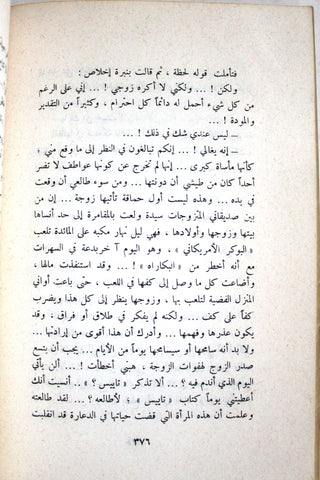 فتأملت قوله لحظة ، ثم قالت بنبرة إخلاص :
ولكن ! ... ولكني لا أكره زوجي ! ... إني على الرغم
من كل شيء أحمل له دائماً كل احترام ، وكثيراً من التقدير
والمودة ! ...
ــ ليس عندي شك في ذلك ! ..
ــ إنه يغالي ! ... إنكم تبالغون في النظر إلى ما وقع مني ؛
كأنها مأساة كبرى ... إنها لم تخرج عن كونها عواطف لا تضر
أحداً كان من طيشي أن دونتها ... ومن سوء طالعي أن وقعت
في يده ... وهذه ليست أول حماقة تأتيها زوجة ... إن من
بين صديقاتي المتزوجات سيدة ولعت بالمقامرة إلى حد أنساها
بيتها وزوجها وأولادها ، فهي ليل نهار مكبة على المائدة تلعب
« البوكر الأمريكاني » ، وهو اليوم آخر بدعة في السهرات
مع أنه أخطر من « البكاراه » ! ... وقد استنفدت مالها ،
وأضاعت كل ما وصل إلى كفها في اللعب ، حتى أباعت أثاث
المنزل الفضية فلعبت بها ، وزوجها ينظر إلى كل هذا ويضرب
كفاً على كف ... ولكنه لم يفكر في طلاق أو فراق ، وقد
يكون عذرها وفهمها ... وأدرك أن هذا أقوى من إرادتها ...
ولا بد أنه سامحها أو سيسامحها يوماً من الأيام ... يجب أن يتسع
صدر الزوج لهفوات الزوجة ، هبني أخطأت ! ... ألن يأتي
اليوم الذي أندم فيه ؟ ... ألا تذكر « تاييس ؟ » .. أنسيت أنك
أعطيتني يوماً كتاب « تاييس » ؛ لأطالعه ؟ .. لقد طالعته
وعلمت أن هذه المرأة التي قضت حياتها في الدعارة قد انقلبت
٣٧٦